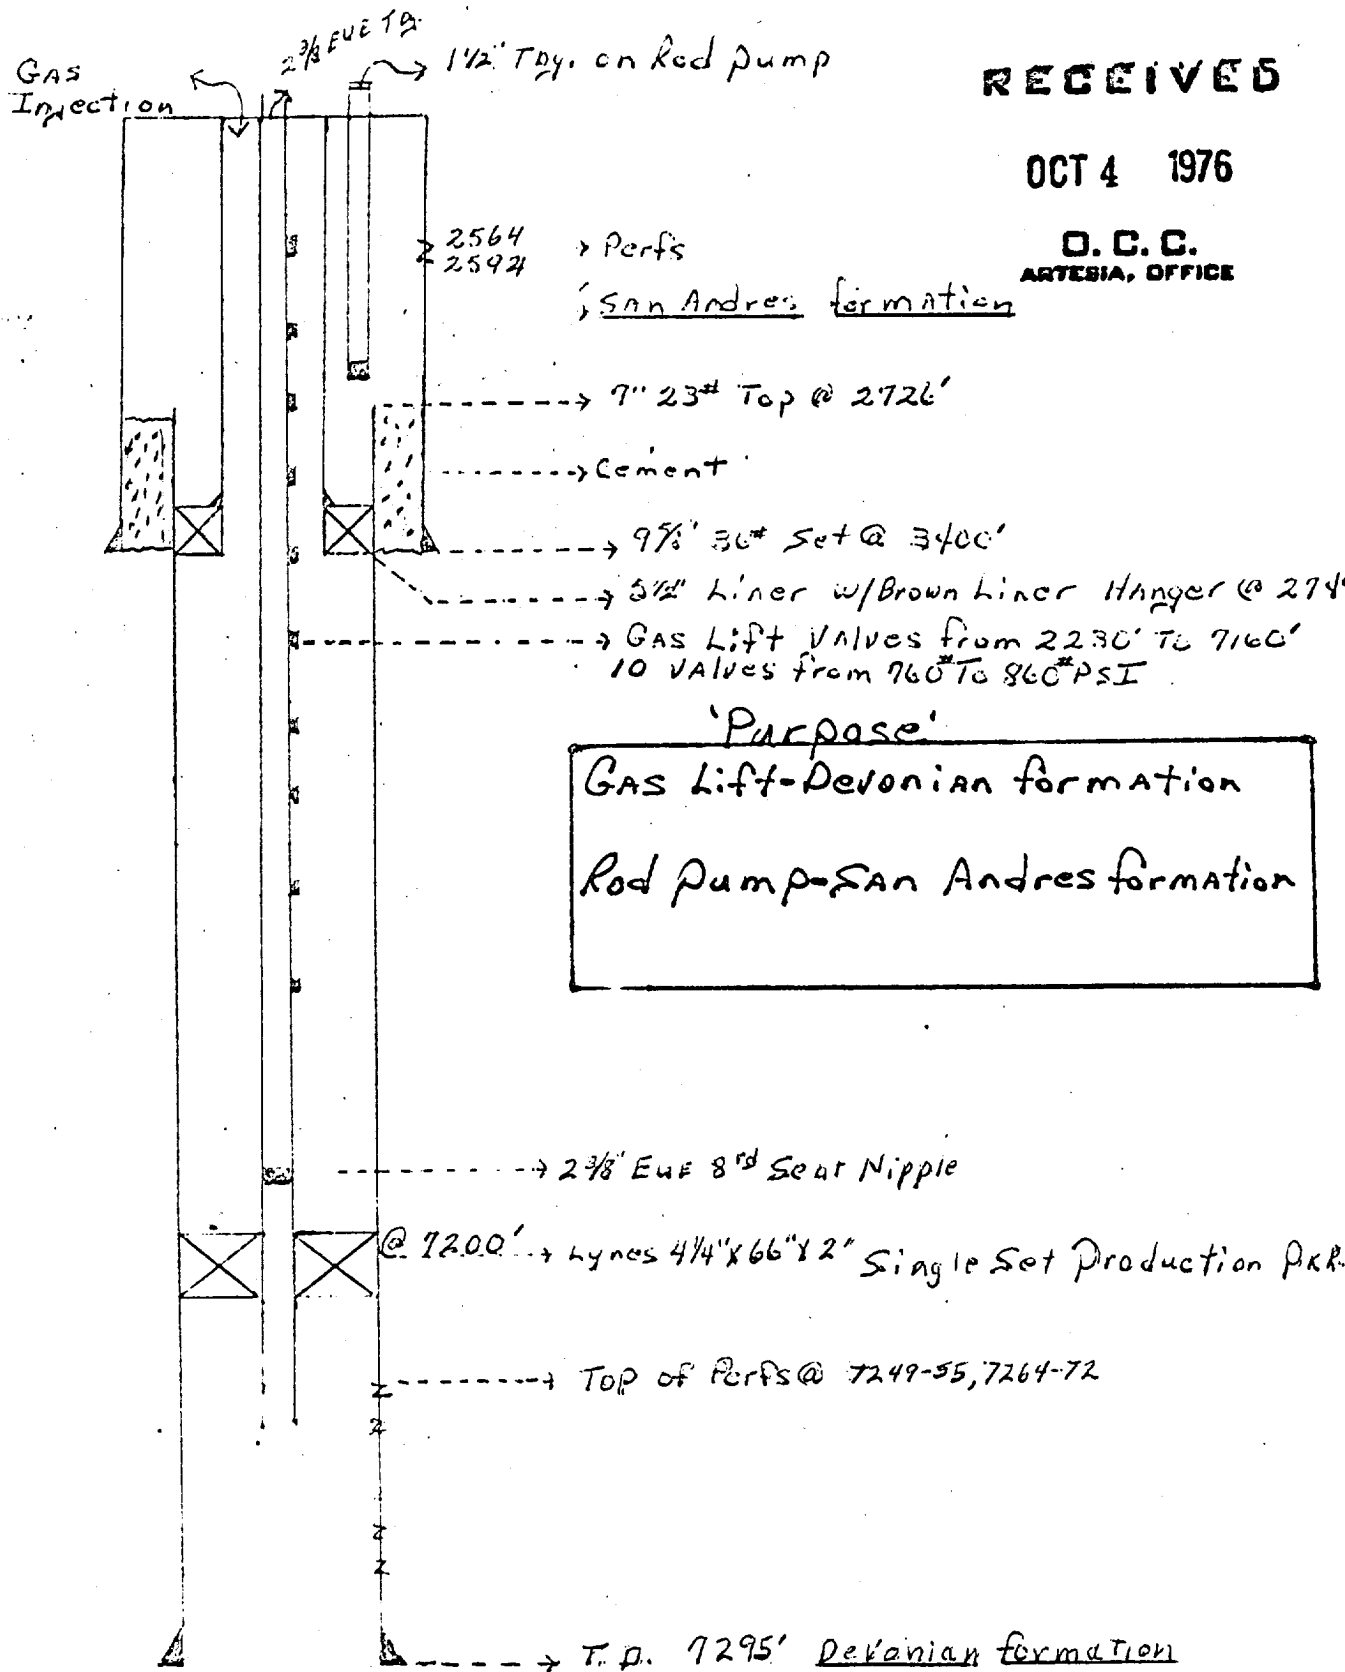 GAS
Injection
2 3/8 EUE TB.
1 1/2" Tbg. on Rod Pump
RECEIVED
OCT 4 1976
O. C. C.
ARTESIA, OFFICE
2564
2594
Perfs
San Andres formation
7" 23# Top @ 2726'
Cement
9 5/8" 36# Set @ 3400'
5 1/2" Liner w/Brown Liner Hanger @
GAS Lift Valves from 2230' To 7160'
10 Valves from 760# To 860# PSI
'Purpose'
GAS Lift-Devonian formation
Rod Pump-San Andres formation
2 3/8" EUE 8rd Seat Nipple
@ 7200' Lynes 4 1/4" X 66" X 2" Single Set Production PKR.
Top of Perfs @ 7249-55, 7264-72
T.D. 7295' Devonian formation